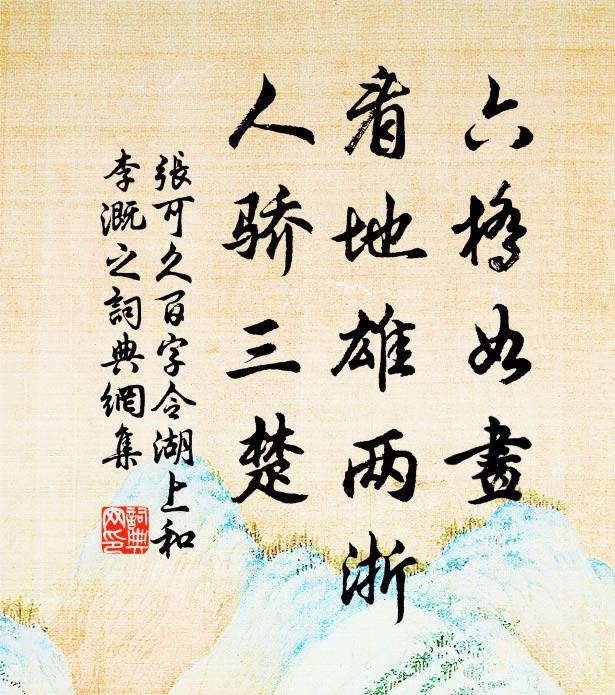 六橋如畫
看地雄两浙
人骄三楚
張可久百字令湖上和
李溉之詞典網集
詞典
网印